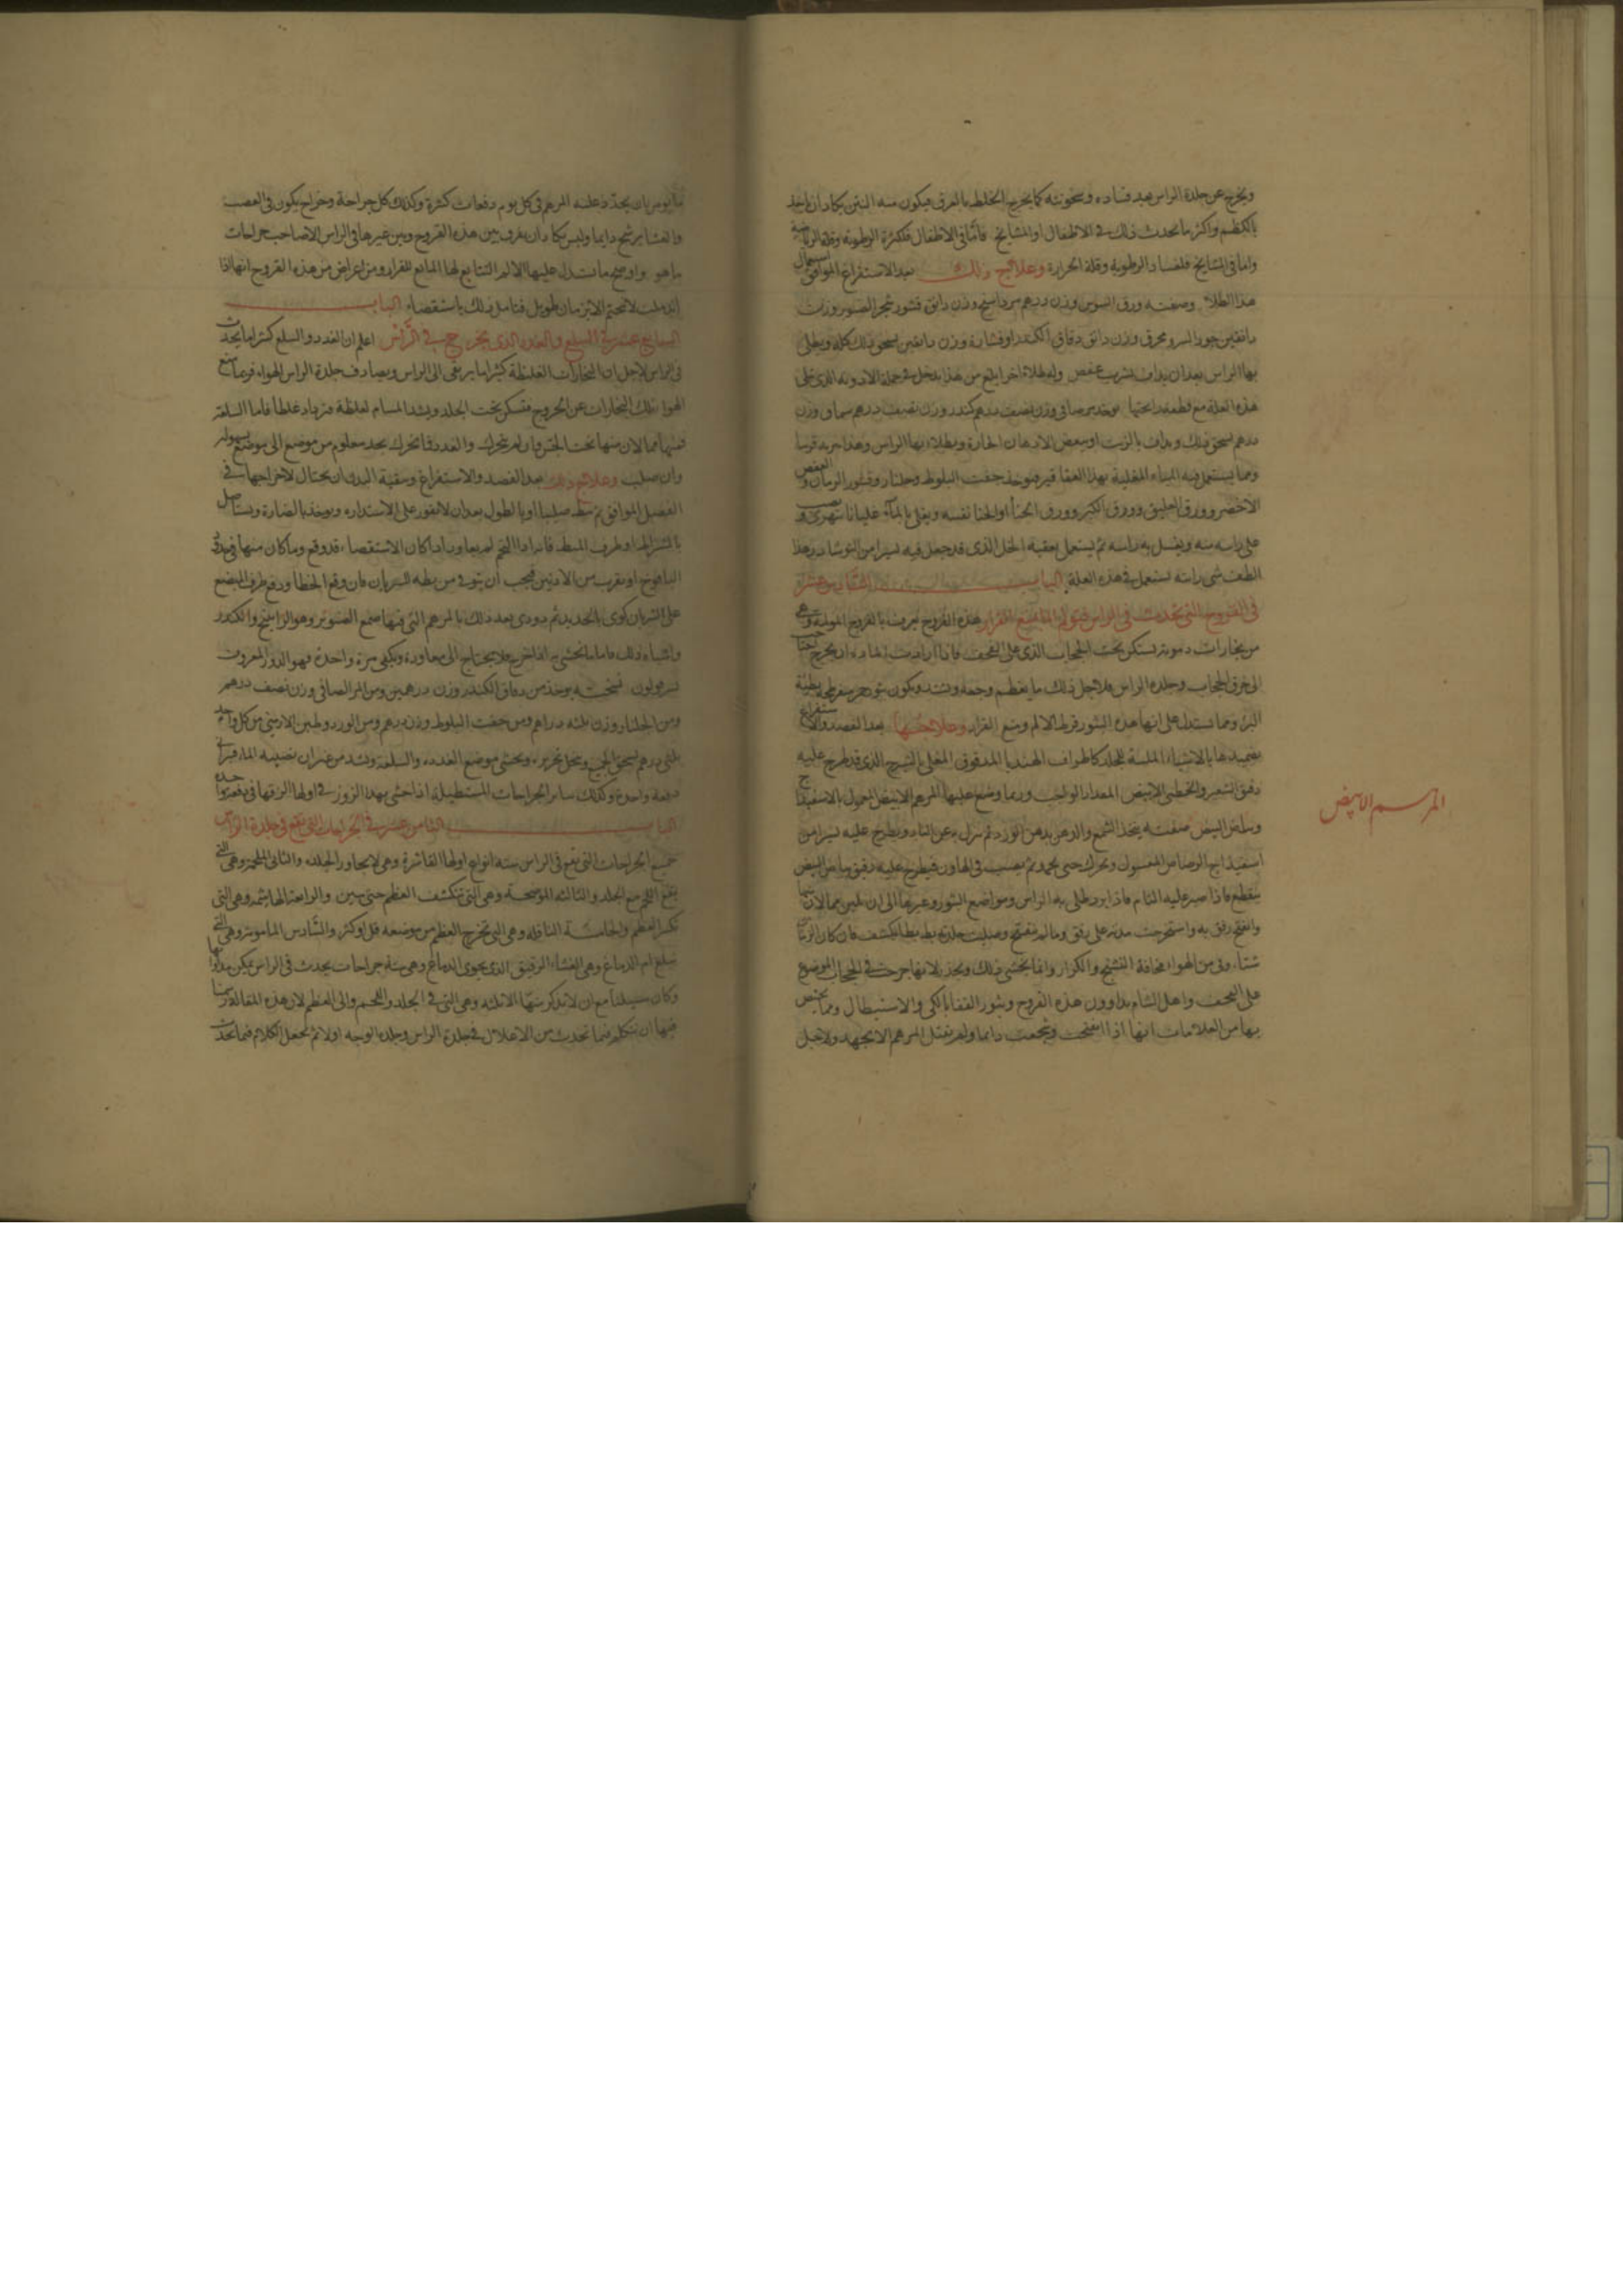 ويخرج عن جلدة الراس هذه فساده وعفونته كما يخرج الخلط بالعرق فيكون منه النتن يكاد ان ياخذ
بالكظم واكثر ما تحدث ذلك في الاطفال او المشايخ فاما في الاطفال فلكثرة الرطوبة وقلة الرياضة
واما في المشايخ فلفساد الرطوبة وقلة الحرارة وعلاج ذلك بعد الاستفراغ الموافق استعمال
هذا الطلا وصفته ورق السوس وزن درهم مرداسنج وزن دانق قشور شجر الصنوبر وزن
دانقين جوز السرو محرق وزن دانق دقاق الكندر او قشاره وزن دانقين يسحق ذلك كله ويطلى
بها الراس بعد ان يداف بشراب عفص وله طلاء اخر ابلغ من هذا يدخل في جملة الادوية الذي
هذه العلة مع قطعه رايحتها يوخذ مر صافي وزن نصف درهم كندر وزن نصف درهم سماق وزن
درهم يسحق ذلك ويداف بالزيت او ببعض الادهان الحارة ويطلا بها الراس وهذا
ومما يستعمل فيه المياه المغلية بهذا العقاقير فيوخذ جفت البلوط وجلنار وقشور الرمان والعفص
الاخضر وورق العليق وورق الكبر وورق الحنا او الحنا نفسه ويغلى بالماء غليانا يتهرى ويصب
على راسه منه ويغسل به راسه ثم يستعمل بعقبه الخل الذي قد جعل فيه يسيرا من النوشادر وهذا
الطف شى رايته يستعمل في هذه العلة الباب السادس عشر
في القروح التي تحدث في الراس المانع القرار هذه القروح تعرف بالقروح
من بخارات دموية تسكن تحت الحجاب الذي على القحف فاذا ارادت الماده ان يخرج تحتاج
الى خرق الحجاب وجلدة الراس فلاجل ذلك ما يعظم وجعه ويشتد ويكون بثور
البرء ومما يستدل على انها هذه البثور فرط الالم ومنع القرار وعلاجها بعد الفصد والاستفراغ
تضميدها بالاشياء الملينة للجلد كاطراف الهندبا المدقوق المغلى بالشيرج الذي قد طرح عليه
دقيق الشعير والخطمى الابيض المقدار الواجب وربما وضع عليها المرهم الابيض المعمول بالاسفيداج
المرهم الابيض
وبياض البيض صفته يتخذ الشمع والدهن بدهن الورد ثم ينزل به عن النار ويطرح عليه يسيرا من
اسفيداج الرصاص المغسول ويحرك حتى يجمد ثم يصب في الهاون فيطرح عليه رقيق بياض البيض
يقطع فاذا صبر عليه التام فاذا برد طلى به الراس ومواضع البثور وغيرها الى ان يلين فما لان منها
وانفتح رفق به واستخرجت مدته على رفق وما لم ينفتح وصلبت جلدته بط بطا يكشف فان كان الزمان
شتاء وقى من الهواء مخافة التشنج والكزاز وانما يخشى ذلك ويحذر لانها جرحت في الحجاب الموضوع
على القحف واهل الشام يداوون هذه القروح وبثور القفا بالكى والاستبطال ومما يختص
بها من العلامات انها اذا انفتحت وتجمعت دايما ولم تقبل المرهم الا بجهد ولاجل
ما يومر بان يجدد عليه المرهم في كل يوم دفعات كثيرة وكذلك كل جراحة وخراج يكون في العصب
والغشا يرشح دايما وليس يكاد ان يفرق بين هذه القروح وبين غيرها في الراس الا صاحب جراحات
ماهر واوضح ما يستدل عليها الالم التتابع لها المانع للقرار ومن اعراض من هذه القروح انها اذا
اندملت لا تلتحم الا بزمان طويل فتامل ذلك باستقصاء الباب
السابع عشر في السلع والغدد الذي يخرج في الراس اعلم ان الغدد والسلع كثيرا ما تحدث
في الراس لاجل ان البخارات الغليظة كثيرا ما يرتقى الى الراس ويصادف جلدة الراس الهواء فربما منع
الهواء تلك البخارات عن الخروج فتسكن تحت الجلد ويشد المسام لغلظة فيزداد غلظا فاما السلعة
فمنها مما لان منها تحت الجس فان لم تتحرك والغدد فما تحرك بحد معلوم من موضع الى موضع بسهولة
وان صلبت وعلاج ذلك بعد الفصد والاستفراغ وتنقية البدن ان يحتال لاخراجها في
الفصل الموافق ثم تبط صليبا او بالطول بعد ان لا تغور على الاستدارة ويوخذ بالصنارة ويستاصل
بالشرايط او طرف المبط فانه اذا التحم لم يعاود اذا كان الاستقصاء قد وقع وما كان منها في حد
اليافوخ او بقرب من الاذنين فيجب ان يتوقى من بطه الشريان فان وقع الخطا ووقع طرف المبضع
على الشريان كوى بالحديد ثم دووى بعد ذلك بالمرهم التي فيها صمغ الصنوبر وهو الراتينج والكندر
واشباه ذلك فاما ما يحشى به اذا خرج فلا يحتاج الى معاودة ويكفى مرة واحدة فهو الذرور المعروف
نسخته يوخذ من دقاق الكندر وزن درهمين ومن المر الصافى وزن نصف درهم
ومن الجلنار وزن ثلثه دراهم ومن جفت البلوط وزن درهم ومن الورد وطين الارمنى من كل واحد
ثلثى درهم يسحق الجميع وينخل بحريره ويحشى موضع الغدده والسلعة ويشد من غير ان يصيبه الماء فيبرا
دفعة واحدة وكذلك ساير الجراحات المستطيلة اذا حشى بهذا الذرور في اولها الزقها في دفعة واحدة
الباب الثامن عشر في الجراحات التي تقع في جلدة الراس
جميع الجراحات التي تقع في الراس ستة انواع اولها القاشرة وهي لا يجاوز الجلد والثانى الملحمة وهى التي
يقع اللحم مع الجلد والثالثة الموضحة وهى التي تنكشف العظم حتى يبين والرابعة الهاشمة وهى التي
تكسر العظم والخامسة الناقلة وهى التي تخرج العظم من موضعه قل او كثر والسادس المامومة وهى التي
تبلغ ام الدماغ وهى الغشاء الرقيق الذي يحوى الدماغ وهى ستة جراحات يحدث في الراس يمكن مداواتها
وكان سبيلنا مع ان لا نذكر منها الا ثلثه وهى التي في الجلد واللحم والى العظم لان هذه المقالة
فيها ان نتكلم فيما تحدث من الاعلال في جلدة الراس وجلدة الوجه اولا ثم نجعل الكلام فيما تحدث